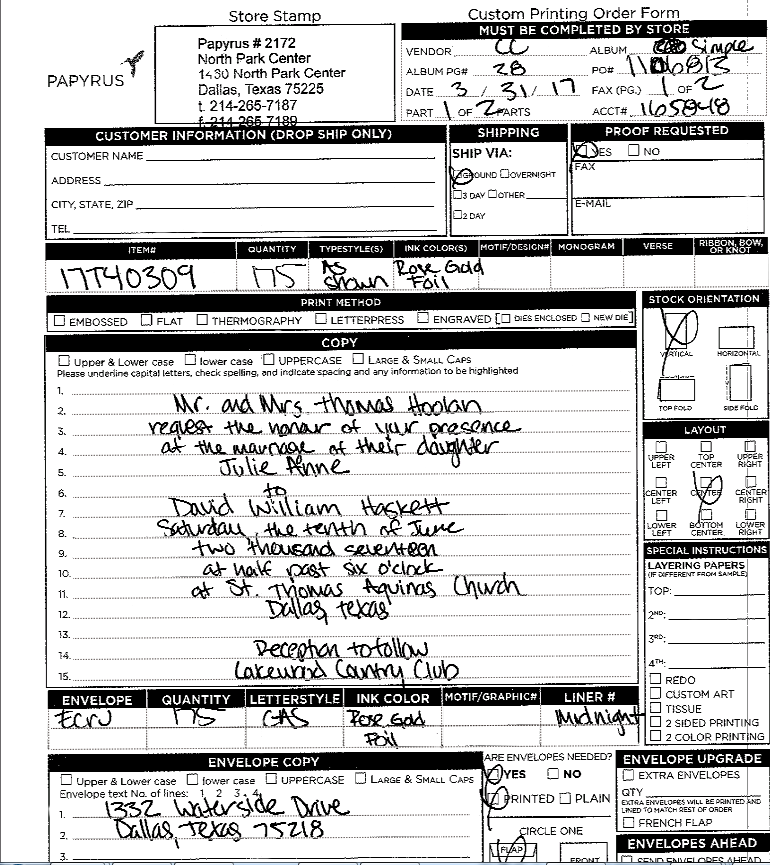 Store Stamp
Custom Printing Order Form
PAPYRUS
Papyrus # 2172
North Park Center
1430 North Park Center
Dallas, Texas 75225
t. 214-265-7187
f. 214-265-7189
MUST BE COMPLETED BY STORE
VENDOR CC ALBUM Simple
ALBUM PG# 28 PO# 1106813
DATE 3 / 31 / 17 FAX (PG.) 1 OF 2
PART 1 OF 2 PARTS ACCT# 165848
CUSTOMER INFORMATION (DROP SHIP ONLY)
CUSTOMER NAME
ADDRESS
CITY, STATE, ZIP
TEL
SHIPPING
SHIP VIA:
GROUND OVERNIGHT
3 DAY OTHER
2 DAY
PROOF REQUESTED
YES NO
FAX
E-MAIL
ITEM# QUANTITY TYPESTYLE(S) INK COLOR(S) MOTIF/DESIGN# MONOGRAM VERSE RIBBON, BOW, OR KNOT
17T40309 175 As Shown Rose Gold Foil
PRINT METHOD
EMBOSSED FLAT THERMOGRAPHY LETTERPRESS ENGRAVED [ DIES ENCLOSED NEW DIE]
COPY
Upper & Lower case lower case UPPERCASE LARGE & SMALL CAPS
Please underline capital letters, check spelling, and indicate spacing and any information to be highlighted
1.
2. Mr. and Mrs. Thomas Hoolan
3. request the honour of your presence
4. at the marriage of their daughter
5. Julie Anne
6. to
7. David William Haskett
8. Saturday, the tenth of June
9. two thousand seventeen
10. at half past six o'clock
11. at St. Thomas Aquinas Church
12. Dallas, Texas
13.
14. Reception to follow
15. Lakewood Country Club
STOCK ORIENTATION
VERTICAL HORIZONTAL
TOP FOLD SIDE FOLD
LAYOUT
UPPER LEFT TOP CENTER UPPER RIGHT
CENTER LEFT CENTER CENTER RIGHT
LOWER LEFT BOTTOM CENTER LOWER RIGHT
SPECIAL INSTRUCTIONS
LAYERING PAPERS
(IF DIFFERENT FROM SAMPLE)
TOP:
2ND:
3RD:
4TH:
REDO
CUSTOM ART
TISSUE
2 SIDED PRINTING
2 COLOR PRINTING
ENVELOPE QUANTITY LETTERSTYLE INK COLOR MOTIF/GRAPHIC# LINER #
Ecru 175 GAS Rose Gold Foil Midnight
ENVELOPE COPY
Upper & Lower case lower case UPPERCASE LARGE & SMALL CAPS
Envelope text No. of lines: 1 2 3 4
1. 1332 Waterside Drive
2. Dallas, Texas 75218
3.
ARE ENVELOPES NEEDED?
YES NO
PRINTED PLAIN
CIRCLE ONE
FLAP FRONT
ENVELOPE UPGRADE
EXTRA ENVELOPES
QTY
EXTRA ENVELOPES WILL BE PRINTED AND
LINED TO MATCH REST OF ORDER
FRENCH FLAP
ENVELOPES AHEAD
SEND ENVELOPES AHEAD